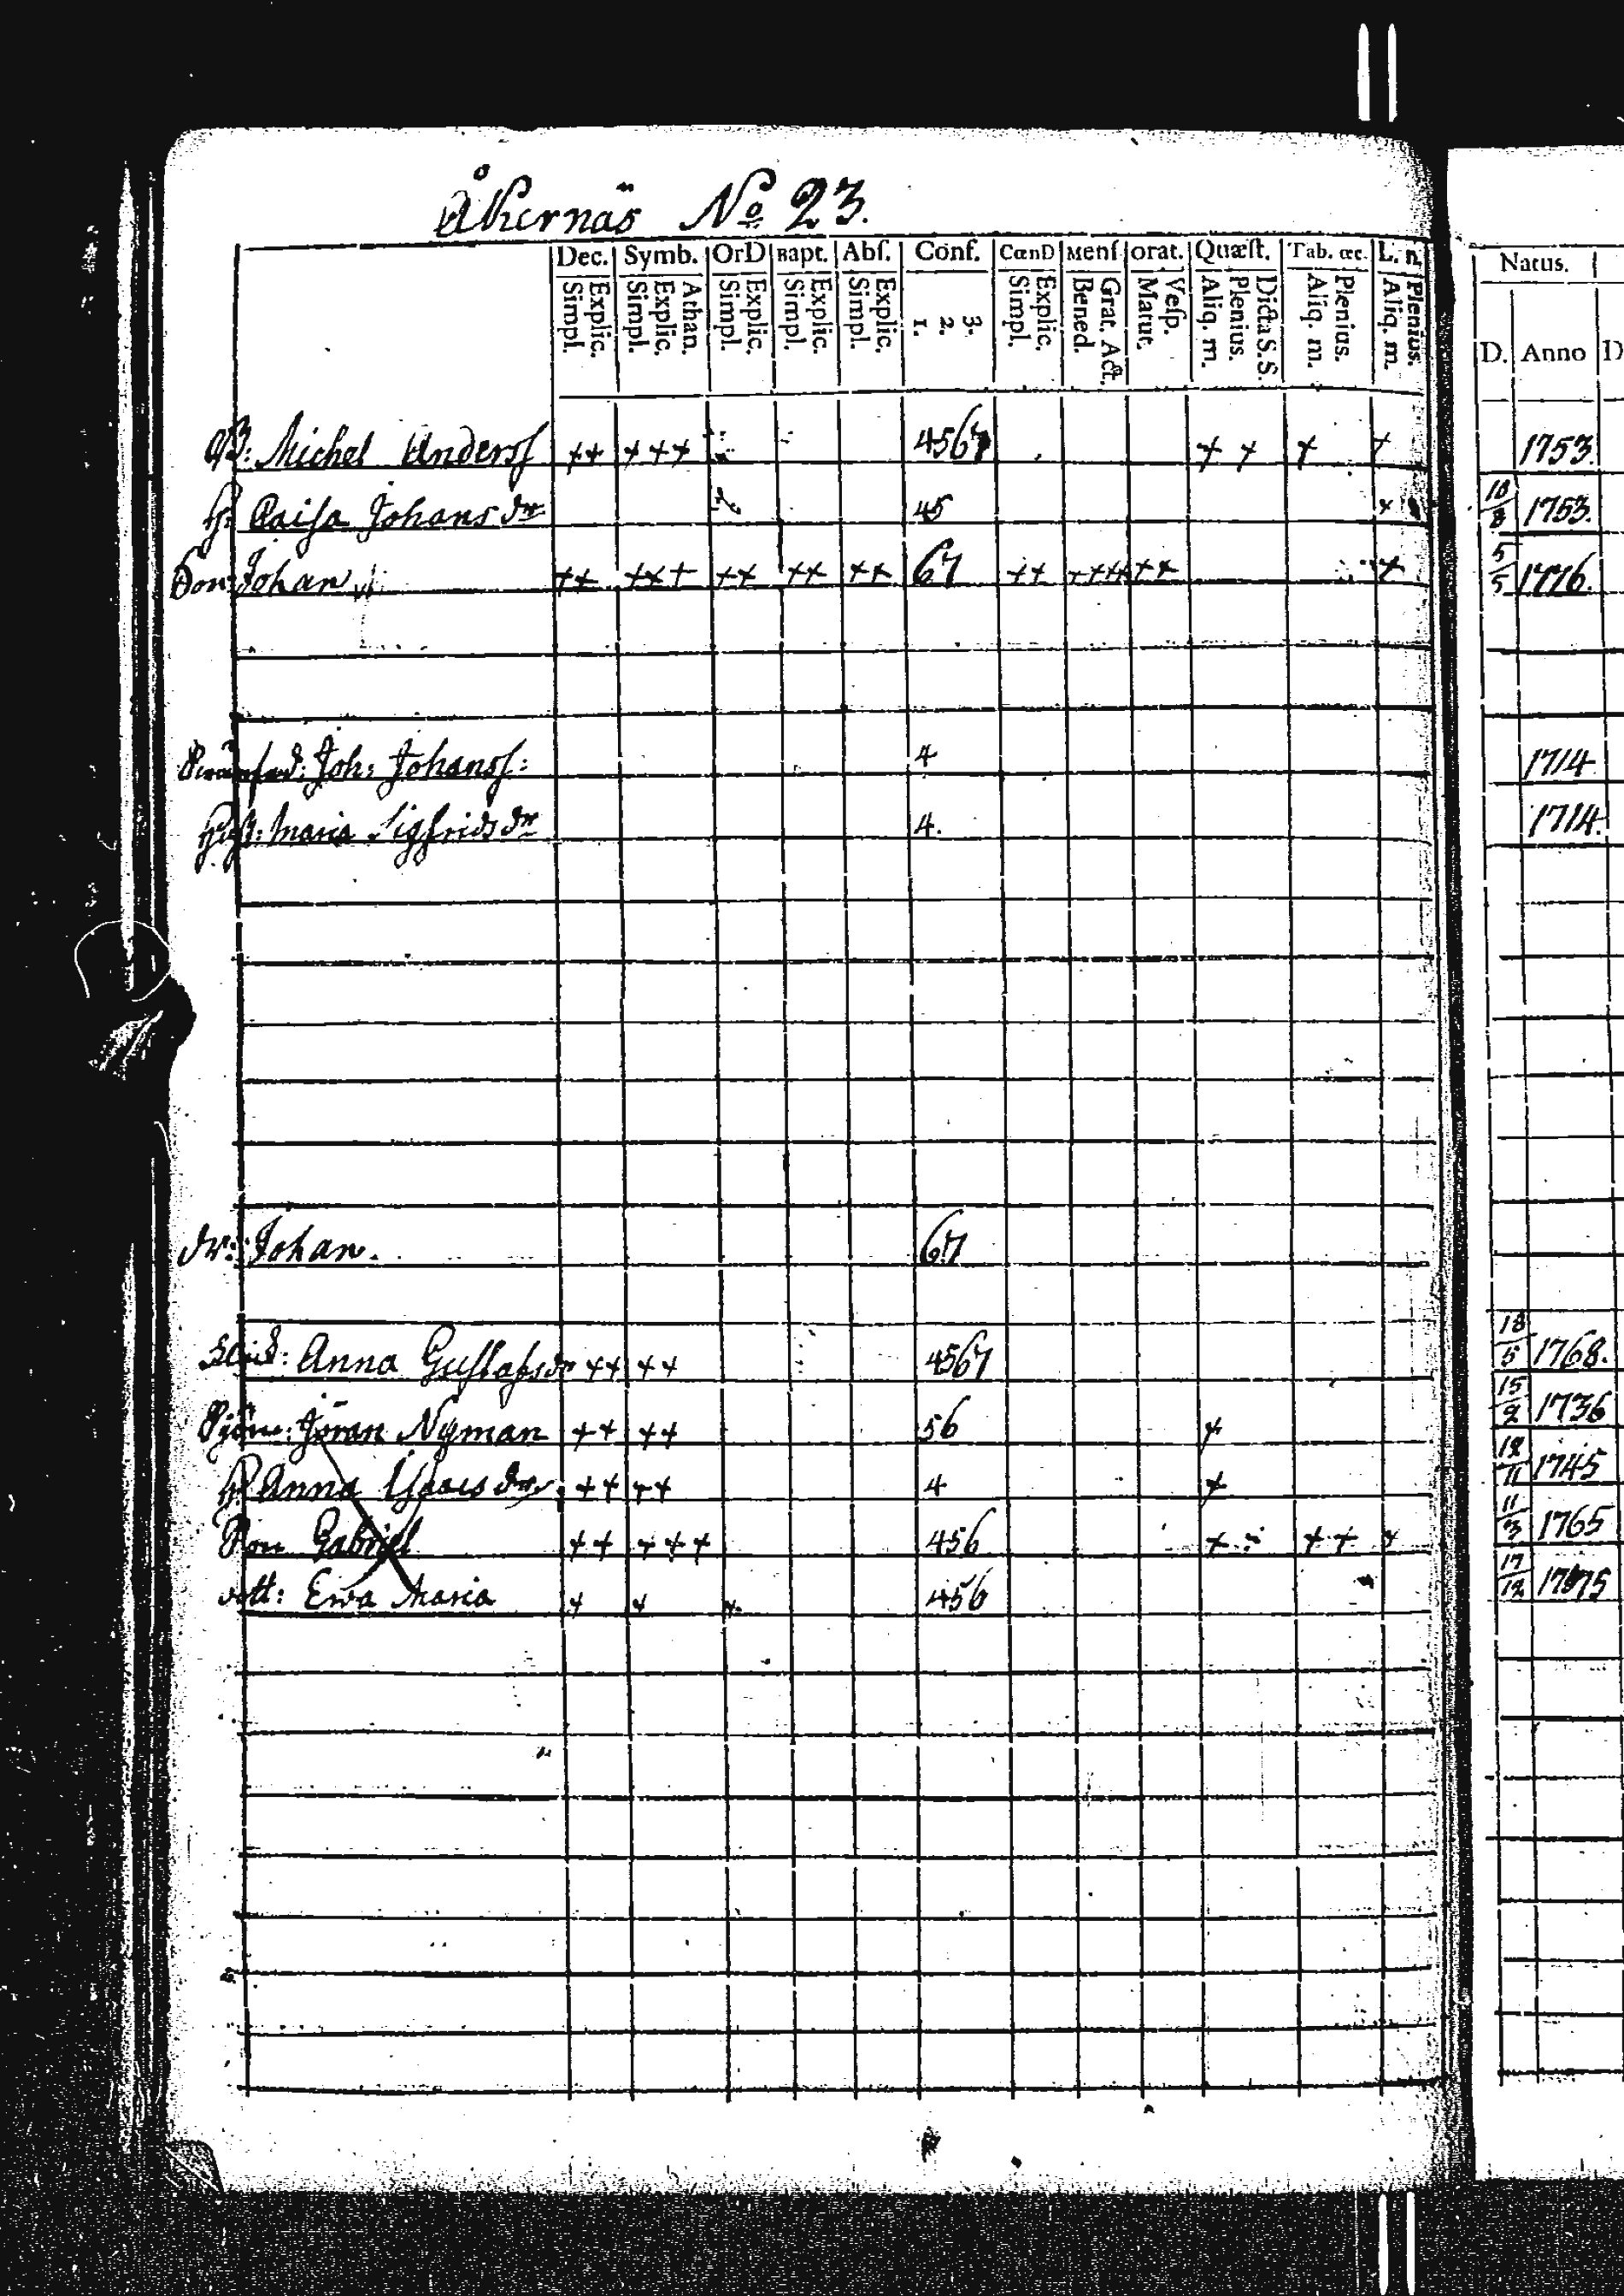 Åkernäs No 23.
Dec. Symb. OrD Bapt. Abſ. Conf. CœnD Menſ. orat. Quæſt. Tab. œc. L. n. Natus.
Explic. Simpl. Athan. Explic. Simpl. Explic. Simpl. Explic. Simpl. Explic. Simpl. 3. 2. 1. Explic. Simpl. Grat. Act. Bened. Veſp. Matut. Dicta S. S. Plenius. Aliq. m. Plenius. Aliq. m. Plenius. Aliq. m. D. Anno D
Michel Anderss ++ +++ 4567 + + + + 1753.
H: Caisa Johansdr 45 + 18/8 1753.
Son: Johan ++ +++ ++ ++ ++ 67 ++ ++++ ++ + 5/5 1776.
Joh: Johanss: 4 1714
Hust: Maria Sigfridsdr 4. 1714.
dr: Johan. 67
Anna Gustafsdr ++ ++ 4567 18/5 1768.
Jöran Nyman ++ ++ 56 + 15/2 1736
H: Anna Isaacsdr ++ ++ 4 + 12/11 1745
Son Gabriel ++ +++ 456 + ++ + 11/3 1765
dott: Ewa Maria + + +. 456 17/12 1775